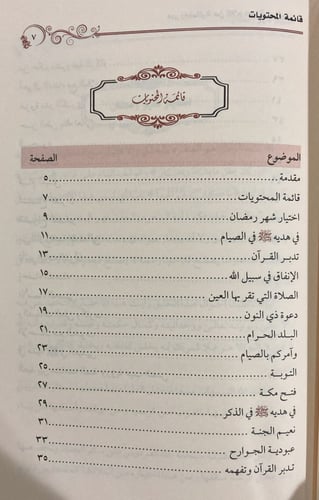 قائمة المحتويات
٧
قائمة المحتويات
الموضوع الصفحة
مقدمة ٥
قائمة المحتويات ٧
اختيار شهر رمضان ٩
في هديه ﷺ في الصيام ١١
تدبر القرآن ١٣
الإنفاق في سبيل الله ١٥
الصلاة التي تقر بها العين ١٧
دعوة ذي النون ١٩
البلد الحرام ٢١
وآمركم بالصيام ٢٣
التوبة ٢٥
فتح مكة ٢٧
في هديه ﷺ في الذكر ٢٩
نعيم الجنة ٣١
عبودية الجوارح ٣٣
تدبر القرآن وتفهمه ٣٥